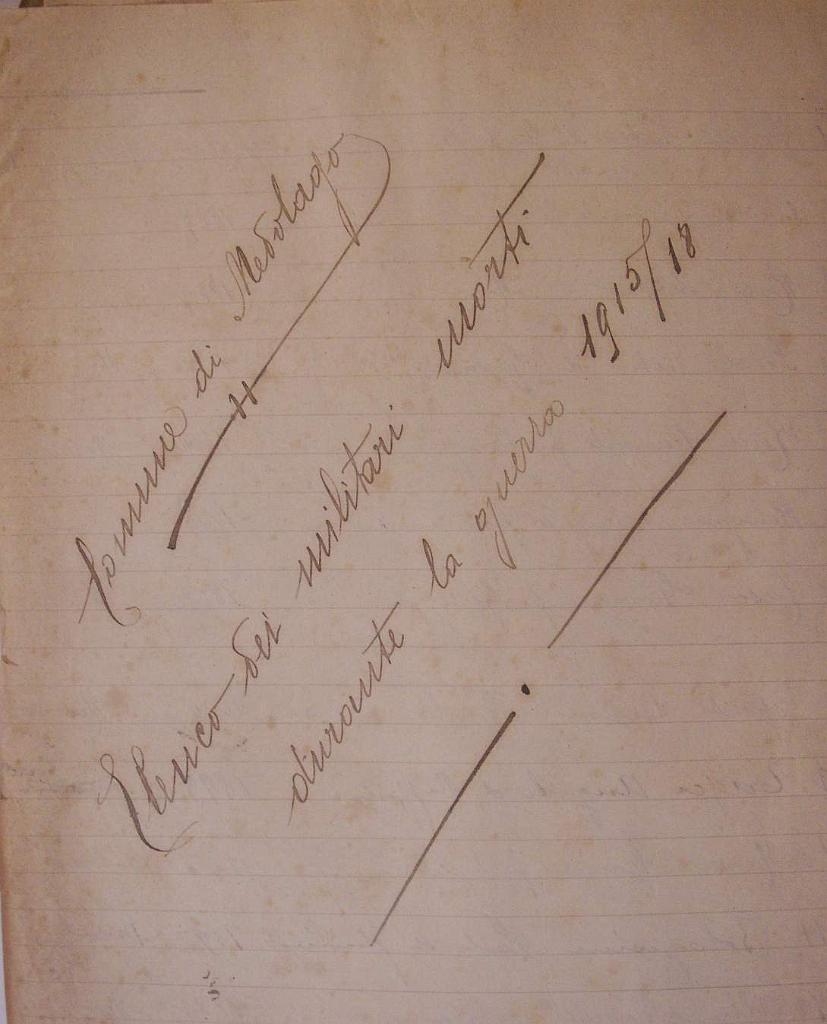 Comune di Medolago
Elenco dei militari morti
durante la guerra 1915/18